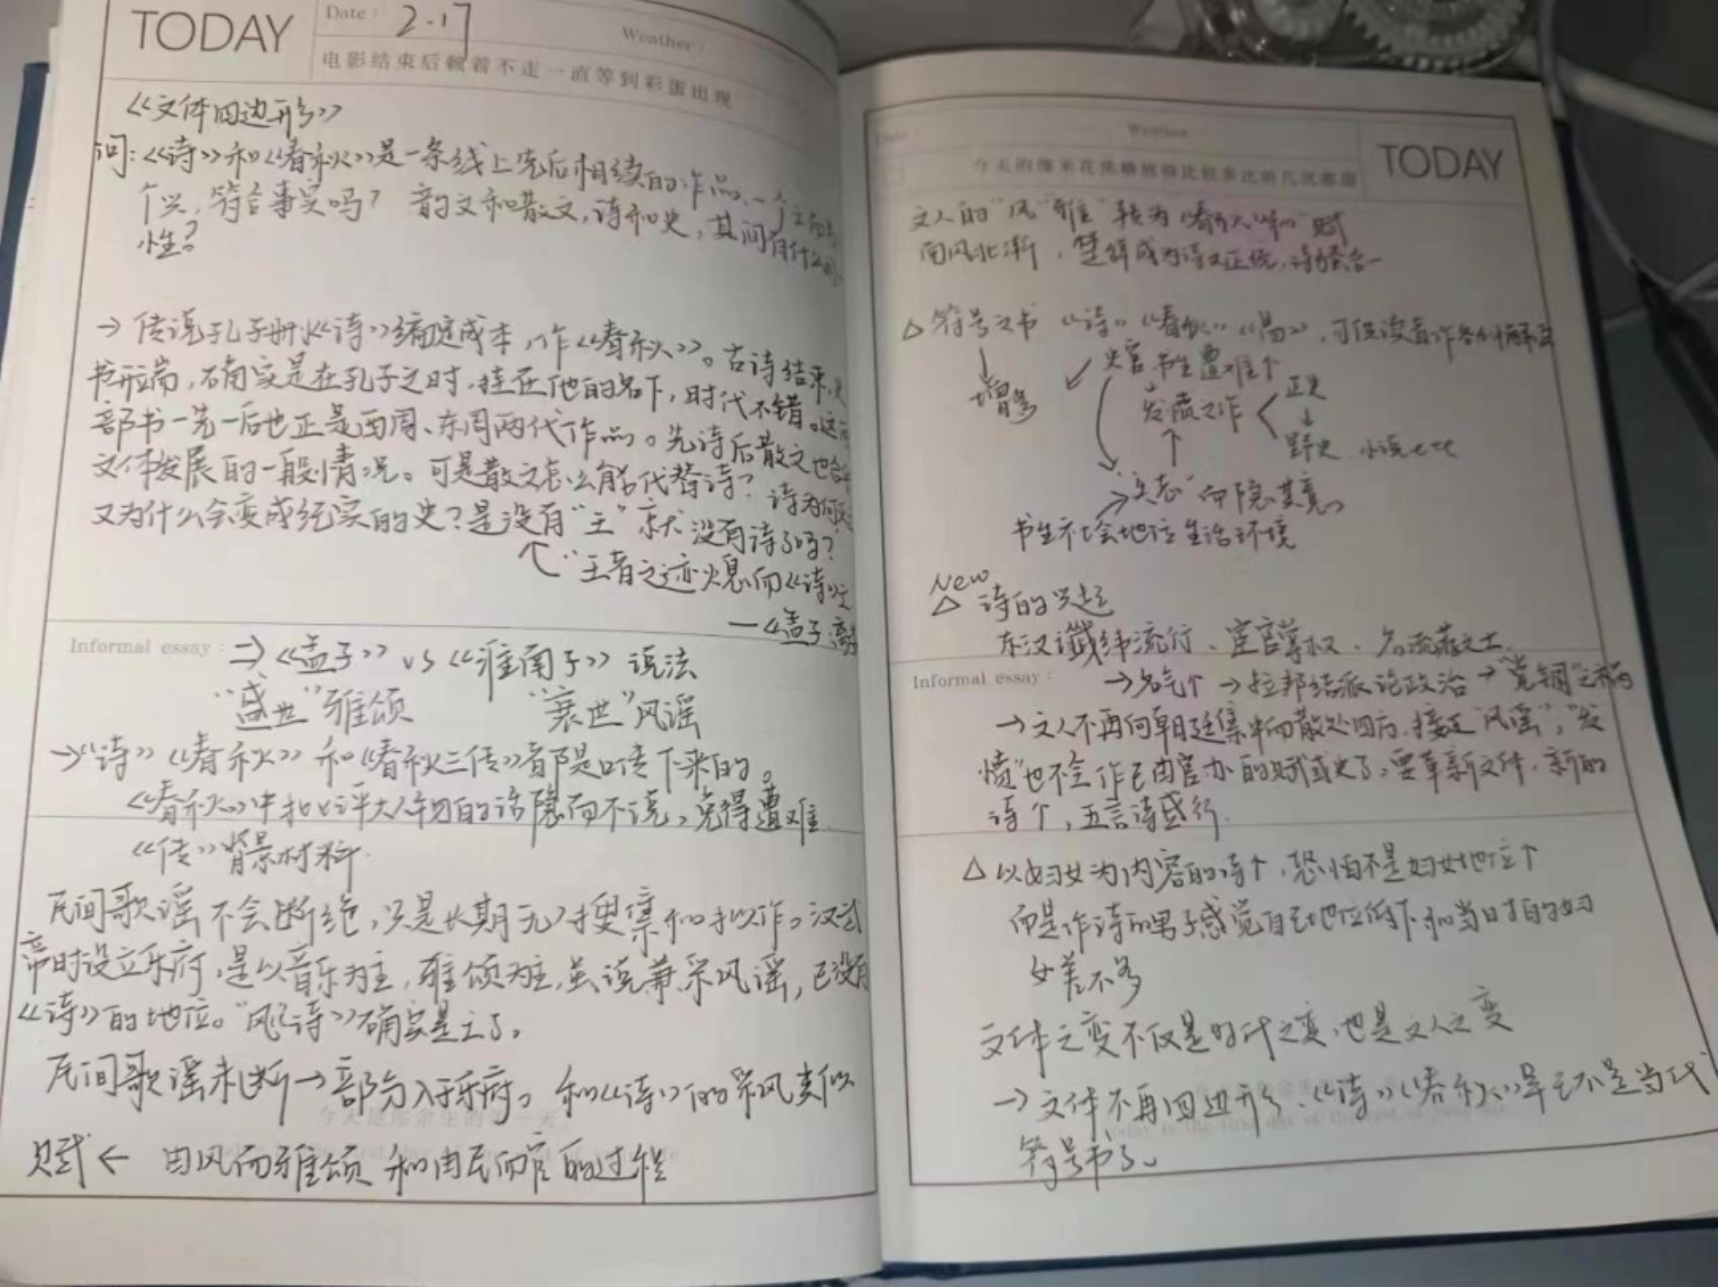 TODAY
Date: 2.17
Weather:
电影结束后赖着不走一直等到彩蛋出现
《文体四边形》
问:《诗》和《春秋》是一条线上先后相续的作品,一个
个兴,符合事实吗? 韵文和散文,诗和史,其间有什么
性?
→ 传说孔子删《诗》编定成本,作《春秋》。古诗结束,
书开端,确实是在孔子之时,挂在他的名下,时代不错。这
部书一先一后也正是西周、东周两代作品。先诗后散文也合
文体发展的一般情况。可是散文怎么能代替诗? 诗为何
又为什么会变成纪实的史?是没有“王”就没有诗了吗?
↑ “王者之迹熄而《诗》亡
—《孟子·离
Informal essay:
⇒《孟子》 vs 《淮南子》 说法
“盛世”雅颂 “衰世”风谣
→《诗》《春秋》和《春秋三传》都是口传下来的。
《春秋》中批评大人物的话隐而不说,免得遭难
《传》背景材料.
民间歌谣不会断绝,只是长期无人搜集和拟作。汉武
帝时设立乐府,是以音乐为主,雅颂为主,虽说兼采风谣,已没有
《诗》的地位。“风诗”确实是亡了。
民间歌谣未断→部分入乐府。和《诗》的采风类似
赋 ← 由风而雅颂 和由民而官的过程
Weather
TODAY
文人的“风”“雅”转为 赋
南风北渐,楚辞成为诗文正统,诗骚合一
△ 符号之书 《诗》《春秋》《易》,可供读者作各种解说
↓
增多
↙ 史官 书生遭难↑
发愤之作 < 正史
↓
野史、小说
↑
“言志”而隐其意。
书生社会地位 生活环境
New
△ 诗的兴起
东汉谶纬流行、宦官掌权、名流
Informal essay:
→名气↑ →拉帮结派论政治 →“党锢”之祸
→文人不再向朝廷集中而散处四方,接近“风谣”,“发
愤”也不会作已由官办的赋或史了。要革新文体,新的
诗↑,五言诗盛行.
△ 以妇女为内容的诗↑,恐怕不是妇女地位↑
而是作诗的男子感觉自己地位低下和当时的妇
女差不多
文体之变不仅是时代之变,也是文人之变
→文体不再四边形:《诗》《春秋》早已不是当代
符号书了。